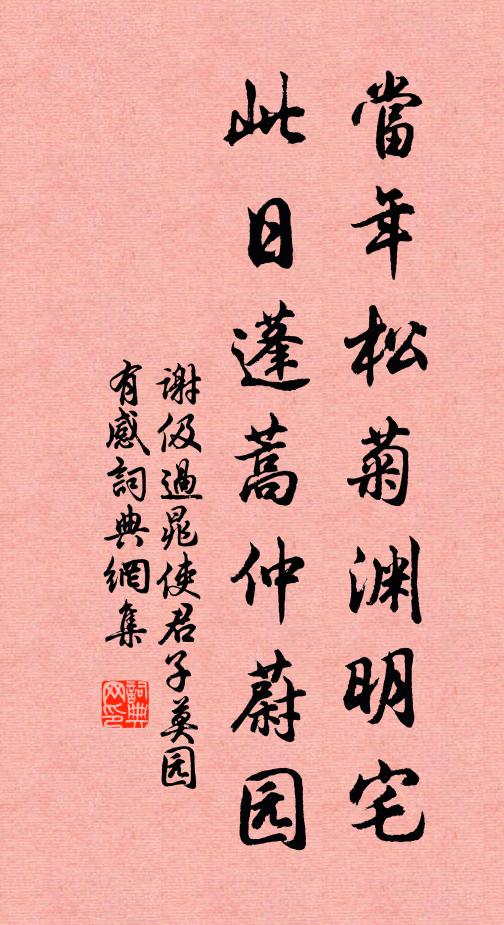 當年松菊渊明宅
此日蓬蒿仲蔚园
谢伋過晁使君子莫园
有感詞典網集
詞典网印